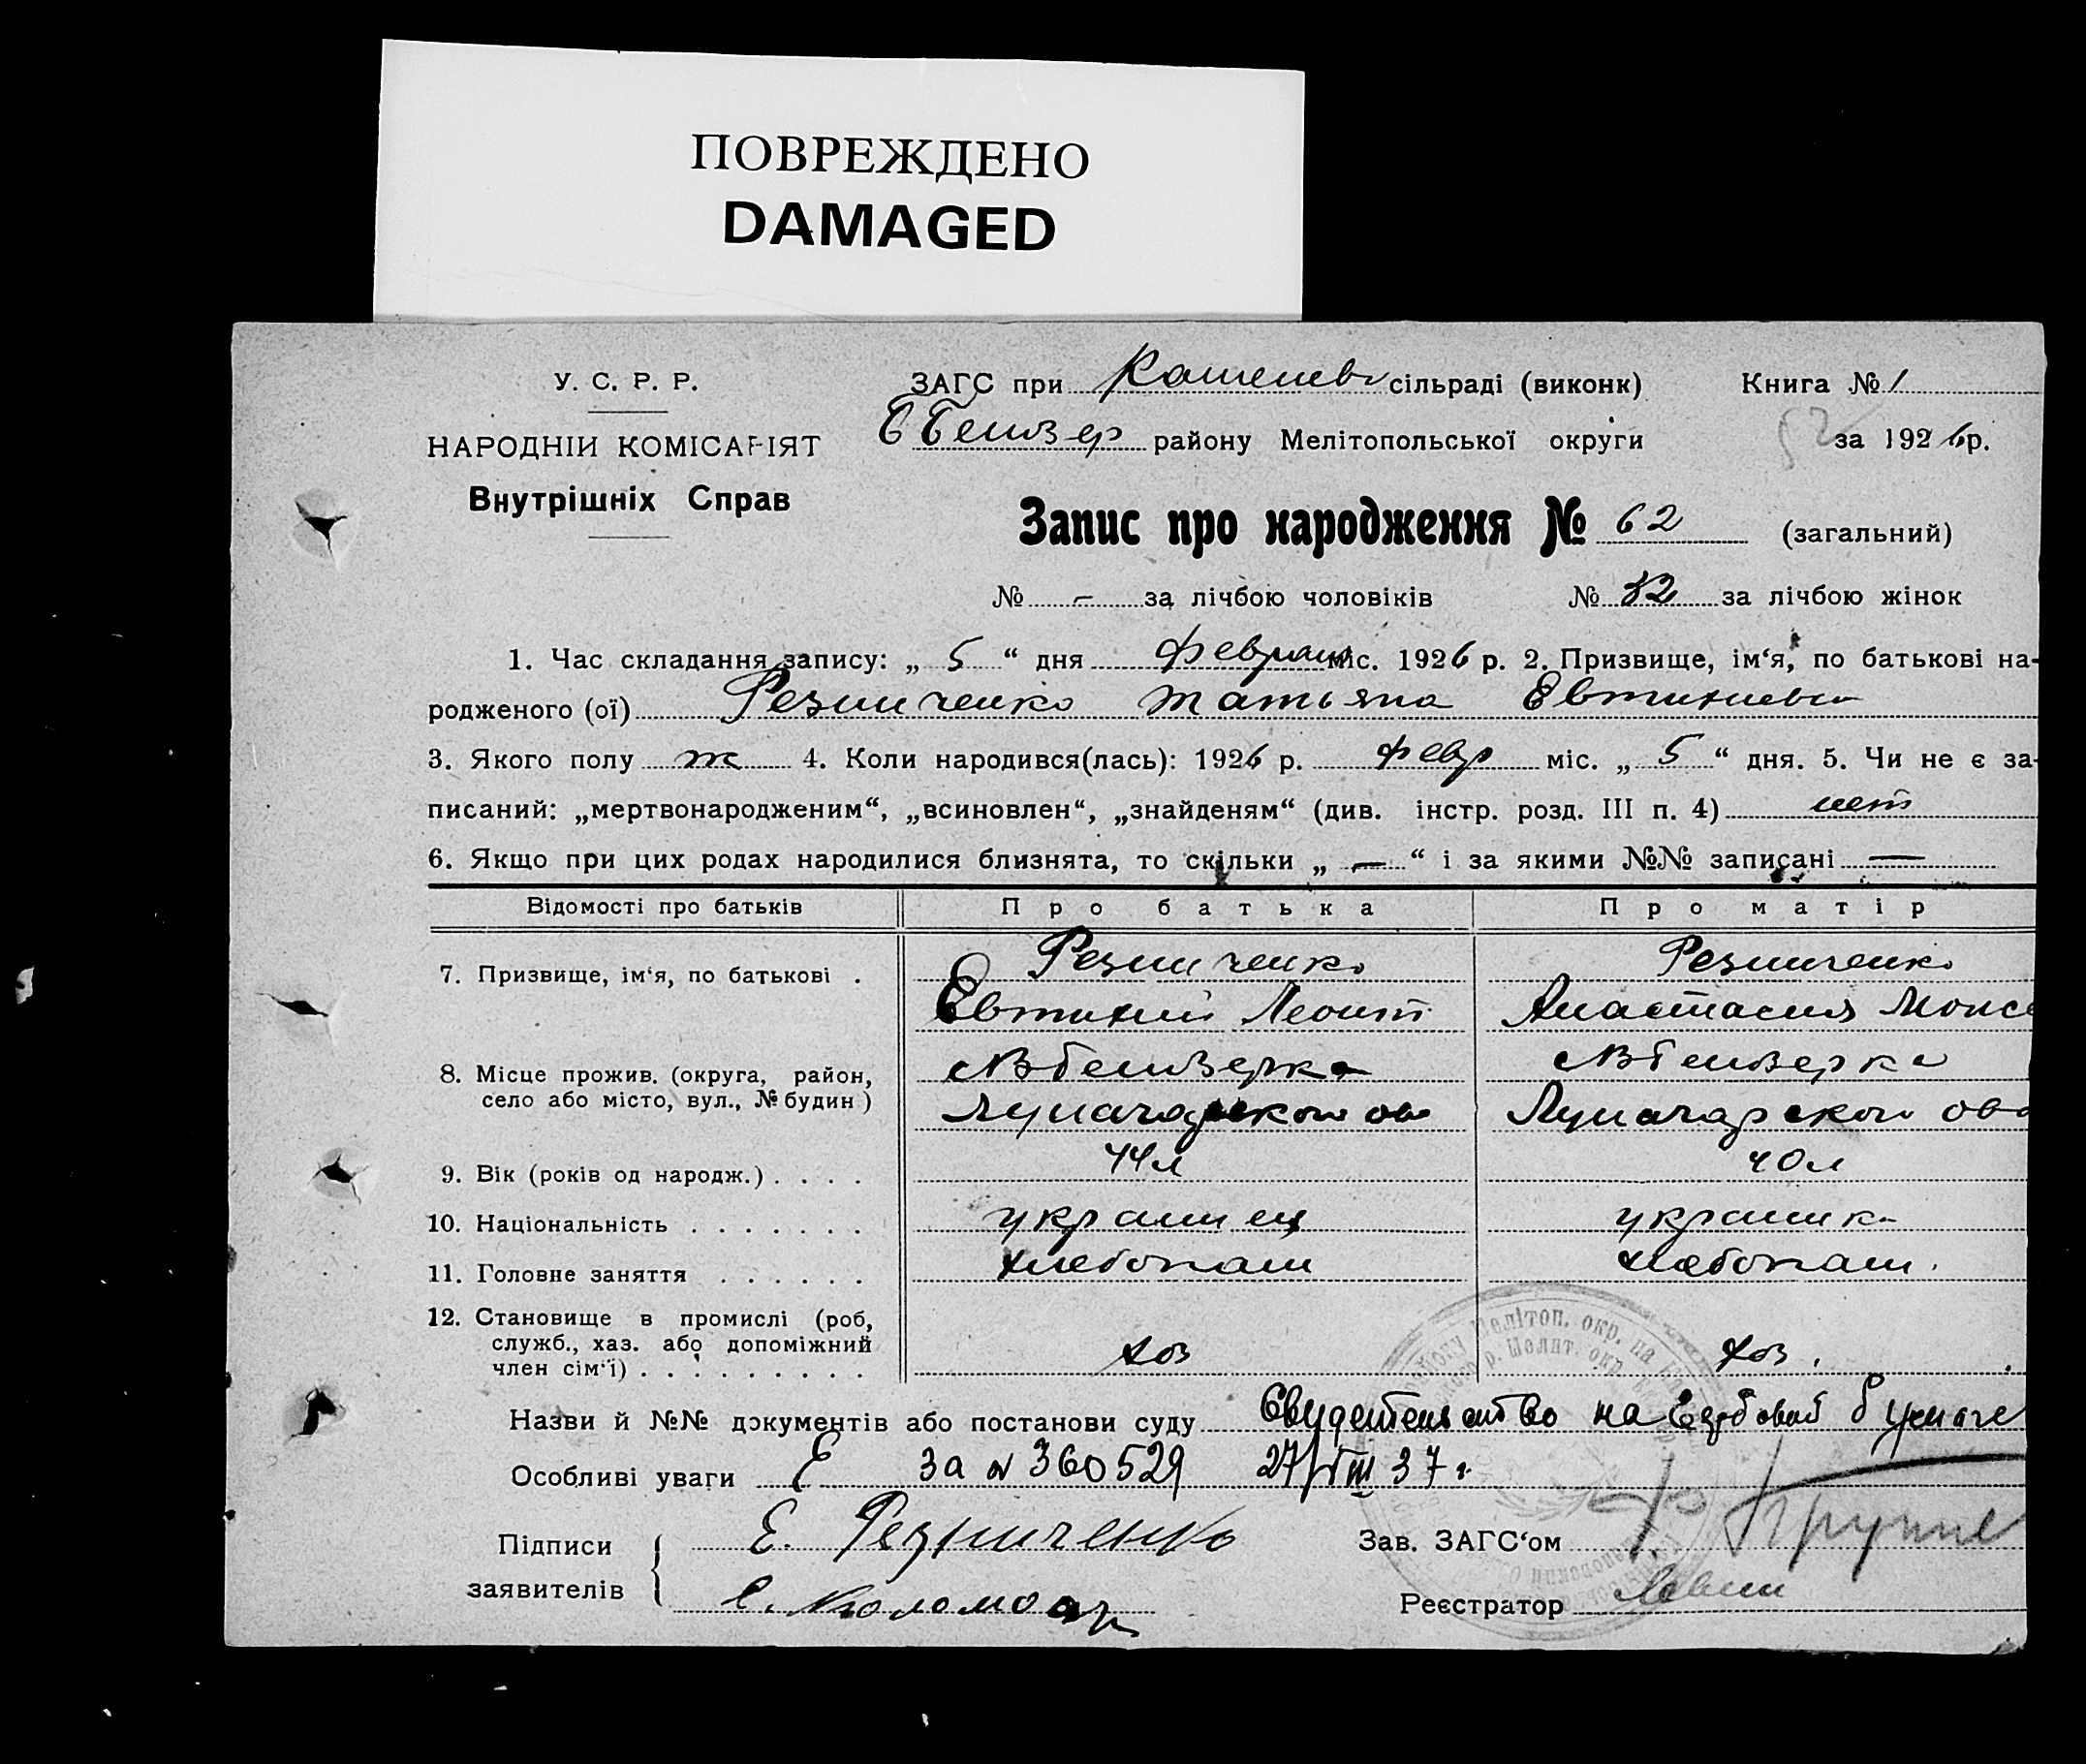 ПОВРЕЖДЕНО
DAMAGED
У. С. Р. Р.
НАРОДНІЙ КОМІСАРІЯТ
Внутрішніх Справ
ЗАГС при сільраді (виконк)
Книга № 1
району Мелітопольської округи
за 1926 р.
Запис про народження № 62 (загальний)
№ - за лічбою чоловіків № 32 за лічбою жінок
1. Час складання запису: „ 5 “ дня февраля міс. 1926 р. 2. Призвище, ім‘я, по батькові на-
родженого (ої) Резниченко Татьяна Евтихиевна
3. Якого полу ж 4. Коли народився(лась): 1926 р. февр міс. „ 5 “ дня. 5. Чи не є за-
писаний: „мертвонародженим“, „всиновлен“, „знайденям“ (див. інстр. розд. III п. 4) нет
6. Якщо при цих родах народилися близнята, то скільки „ — “ і за якими №№ записані —
Відомості про батьків Про батька Про матір
7. Призвище, ім‘я, по батькові . Резниченко Резниченко
Евтихий Леонт Анастасия Моисе
8. Місце прожив. (округа, район,
село або місто, вул., № будин)
9. Вік (років од народж.) . . . . 44л 40л
10. Національність . . . . . . . украинец украинка
11. Головне заняття . . . . . . хлебопаш хлебопаш.
12. Становище в промислі (роб,
служб., хаз. або допоміжний
член сім‘ї) . . . . . . . . . хоз хоз.
Назви й №№ документів або постанови суду Свидетельство на гербовой бумаге
Особливі уваги за № 360529 27/VIII 37 г.
Підписи
заявителів
Е. Резниченко
Зав. ЗАГС‘ом
Реєстратор